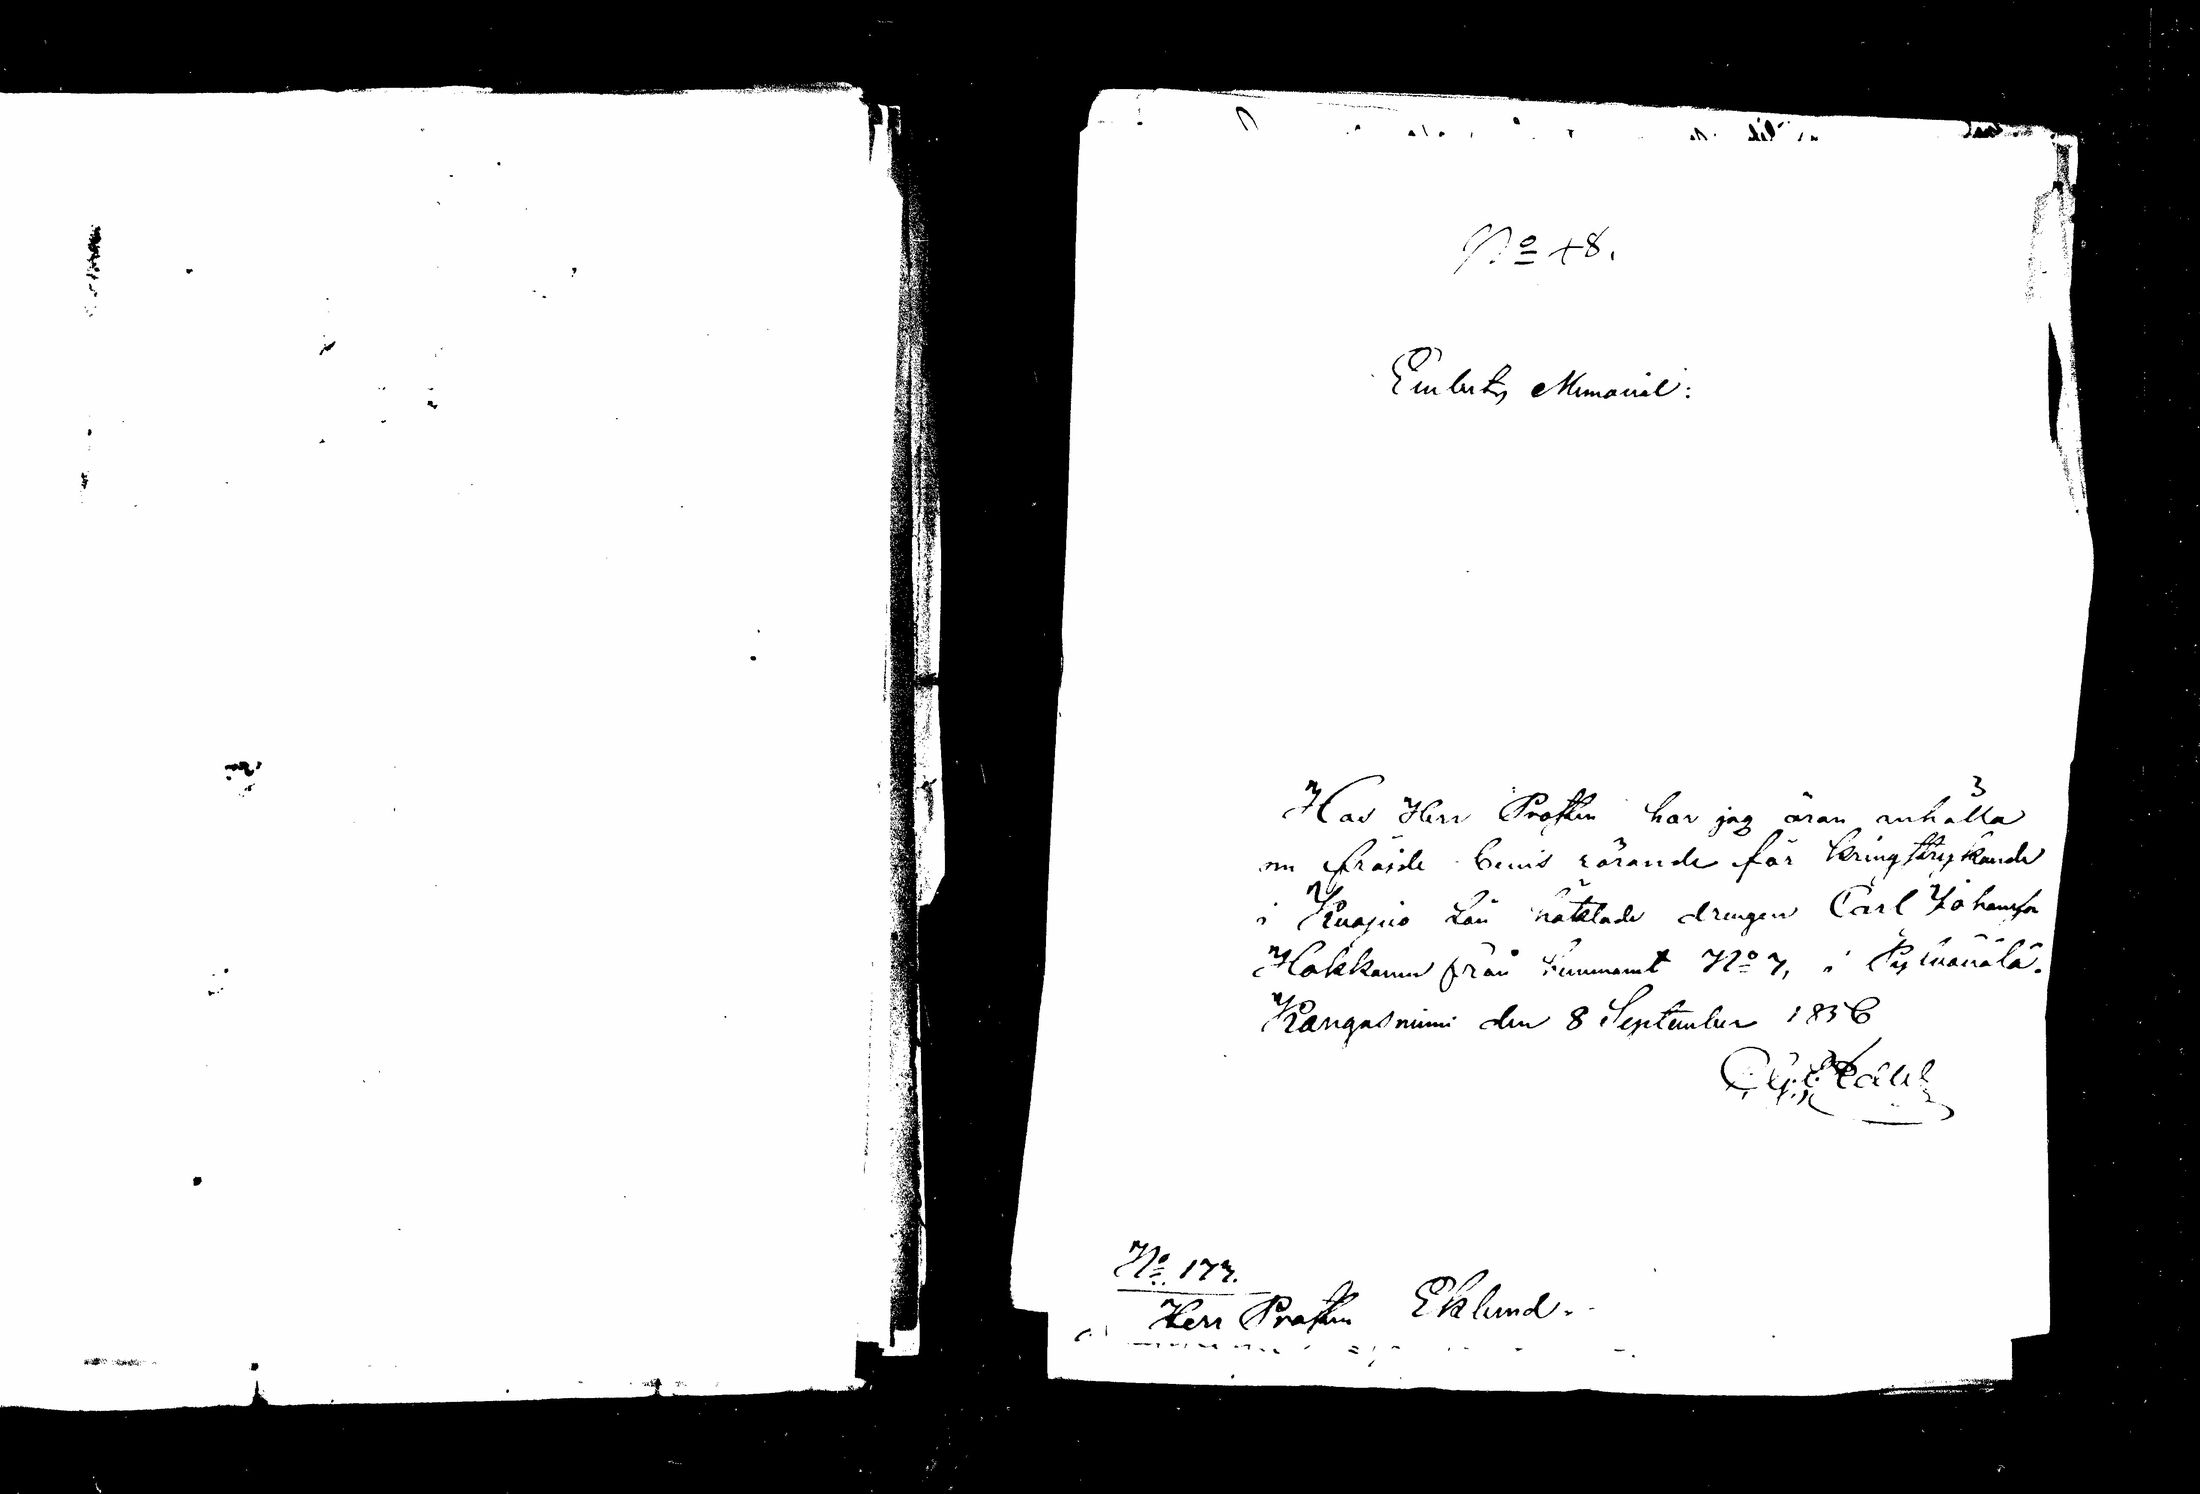 No 48.
Embets Memorial:
Hos Herr Prosten har jag äran anhålla
om fräjde bevis rörande för kringstrykande
i Kuopio Län häktade drengen Carl Johansson
Hokkanen från hemmanet No 7, i Pylvänälä.
Kangasniemi den 8 September 1856
No 177.
Herr Prosten Eklund.